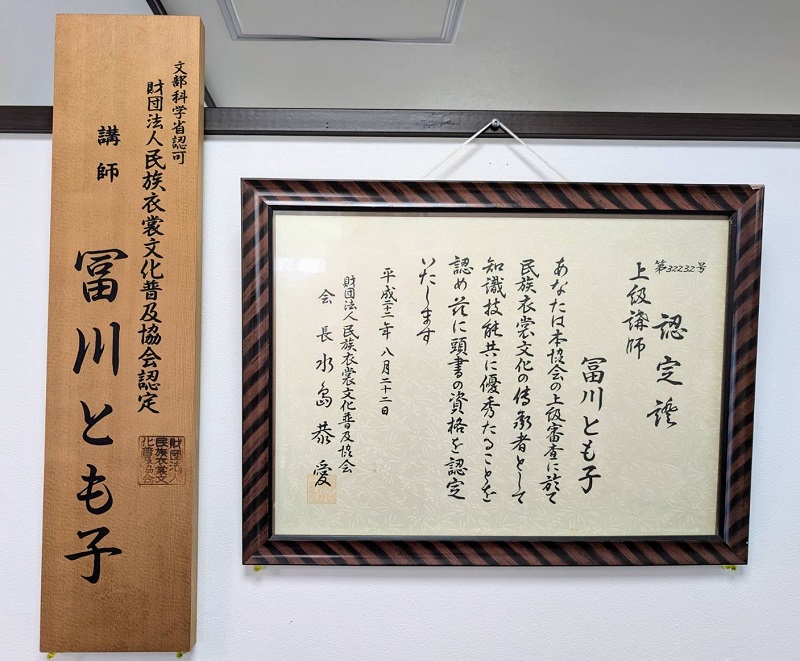 文部科学省認可
財団法人民族衣裳文化普及協会認定
講師
冨川とも子
財団法人
民族衣裳文
化普及協会
第32232号
認定證
上級講師
冨川とも子
あなたは本協会の上級審査に於て
民族衣裳文化の傳承者として
知識技能共に優秀たることを
認め茲に頭書の資格を認定
いたします
平成二十二年八月二十二日
財団法人民族衣裳文化普及協会
会長水島恭愛